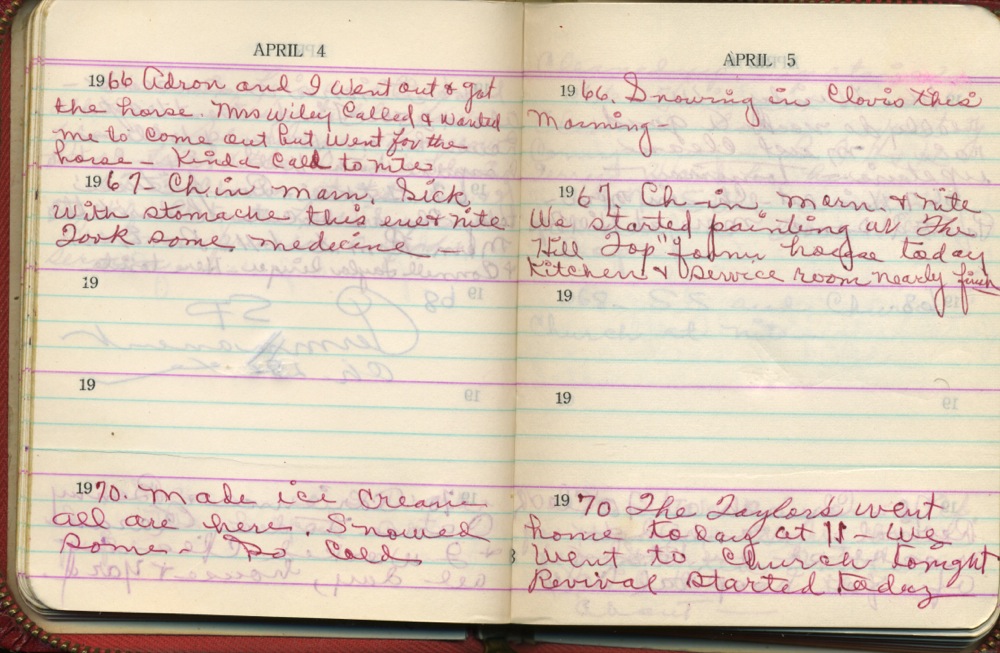 APRIL 4
1966 Adron and I went out & got
the horse. Mrs Wiley Called & wanted
me to come out but went for the
horse – Kinda Cold to nite
1967– Ch in morn. Sick
with stomache this eve & nite
Took some medicine –
19
19
1970. Made ice creame
all are here. Snowed
some – So Cold
APRIL 5
1966. Snowing in Clovis this
morning –
1967. Ch – in morn & nite
We started painting at The
Hill Top" farm house today
Kitchen & service room nearly finish
19
19
1970 The Taylors went
home today at 11 – We
went to Church tonight
Revival started today